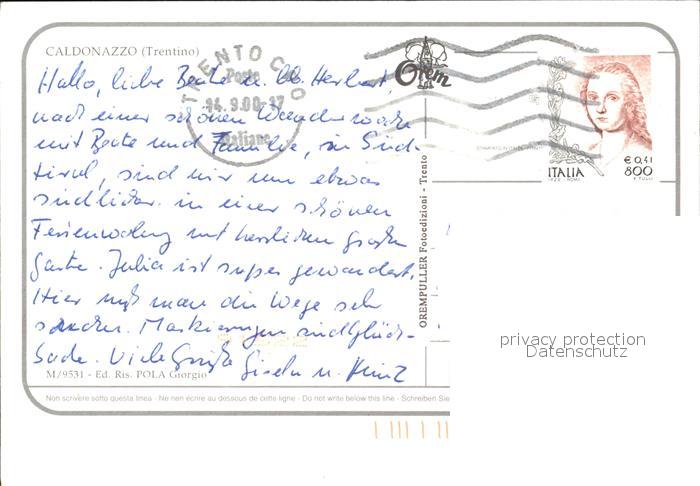 CALDONAZZO (Trentino)
Hallo, liebe Beate u. lb. Herbert,
nach einer schönen Wanderwoche
mit Beate und Familie, in Süd-
tirol, sind wir nun etwas
südlicher in einer schönen
Ferienwohng mit herrlichem großen
Garten. Julia ist super gewandert.
Hier muß man die Wege sehr
suchen. Markierungen sind Glück-
Sache. Viele Grüße
Gisela u. Heinz
M/9531 - Ed. Ris. POLA Giorgio
Non scrivere sotto questa linea · Ne rien écrire au dessous de cette ligne · Do not write below this line · Schreiben Sie
TRENTO
Poste
14.9.00-17
Italiane
Orem
OREMPULLER Fotoedizioni - Trento
€ 0,41
ITALIA 800
privacy protection
Datenschutz